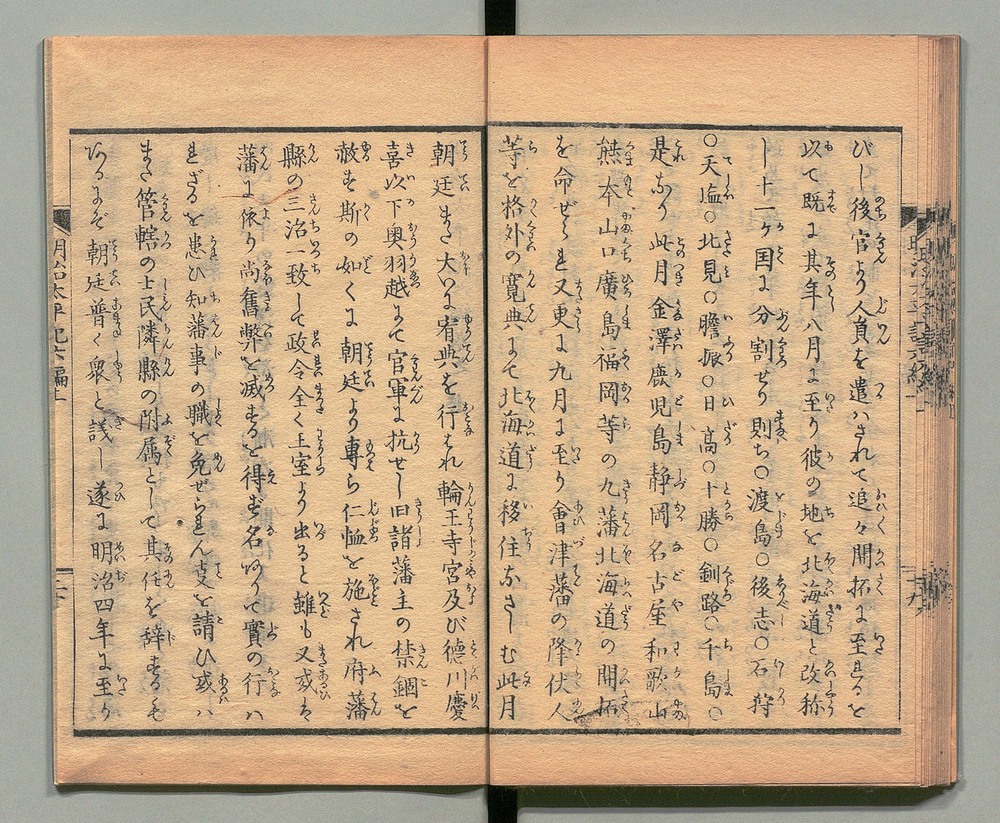 びし後官より人員を遣ハされて追々開拓に至まるを
以て既に其年八月に至り彼の地を北海道と改称
し十一ヶ国に分割せり則ち○渡島○後志○石狩
○天塩○北見○膽振○日高○十勝○釧路○千島○
是なり此月金澤鹿児島静岡名古屋和歌山
熊本山口廣島福岡等の九藩北海道の開拓
を命ぜられ又更に九月に至り會津藩の降伏人
等を格外の寛典にて北海道に移住なさしむ此月
朝廷また大いに宥典を行はれ輪王寺宮及び徳川慶
喜以下奥羽越にて官軍に抗せし旧諸藩主の禁錮を
赦す斯の如くに朝廷より専ら仁恤を施され府藩
縣の三治一致して政令全く王室より出ると雖も又或は
藩に依り尚舊弊を滅するを得ず名ありて實の行ハ
れざるを患ひ知藩事の職を免ぜられん事を請ひ或ハ
また管轄の士民隣縣の附属として其任を辞するも
あるにぞ朝廷普く衆と議し遂に明治四年に至り
明治太平記六編上